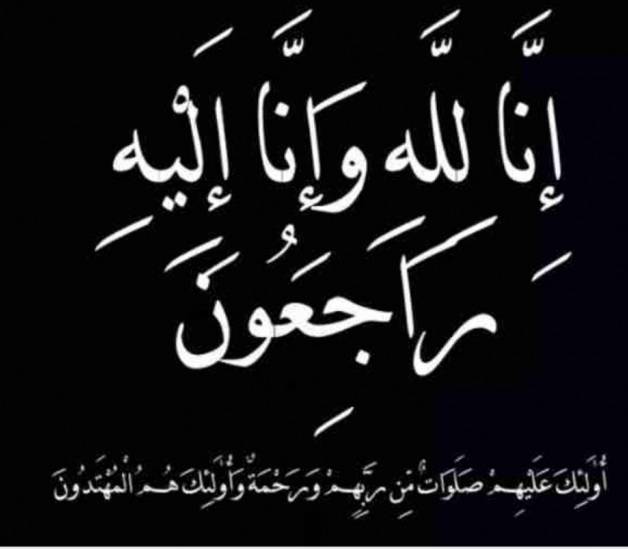 إِنَّا لِلَّهِ وَإِنَّا إِلَيْهِ
رَاجِعُونَ
أُولَٰئِكَ عَلَيْهِمْ صَلَوَاتٌ مِّن رَّبِّهِمْ وَرَحْمَةٌ وَأُولَٰئِكَ هُمُ الْمُهْتَدُونَ